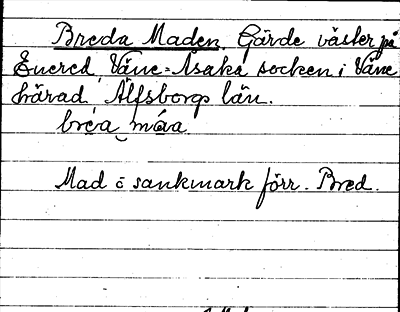 Breda Maden. Gärde väster på
Enered, Väne-Åsaka socken i Väne
härad, Älfsborgs län.
bréa máa
Mad = sankmark förr. Bred.